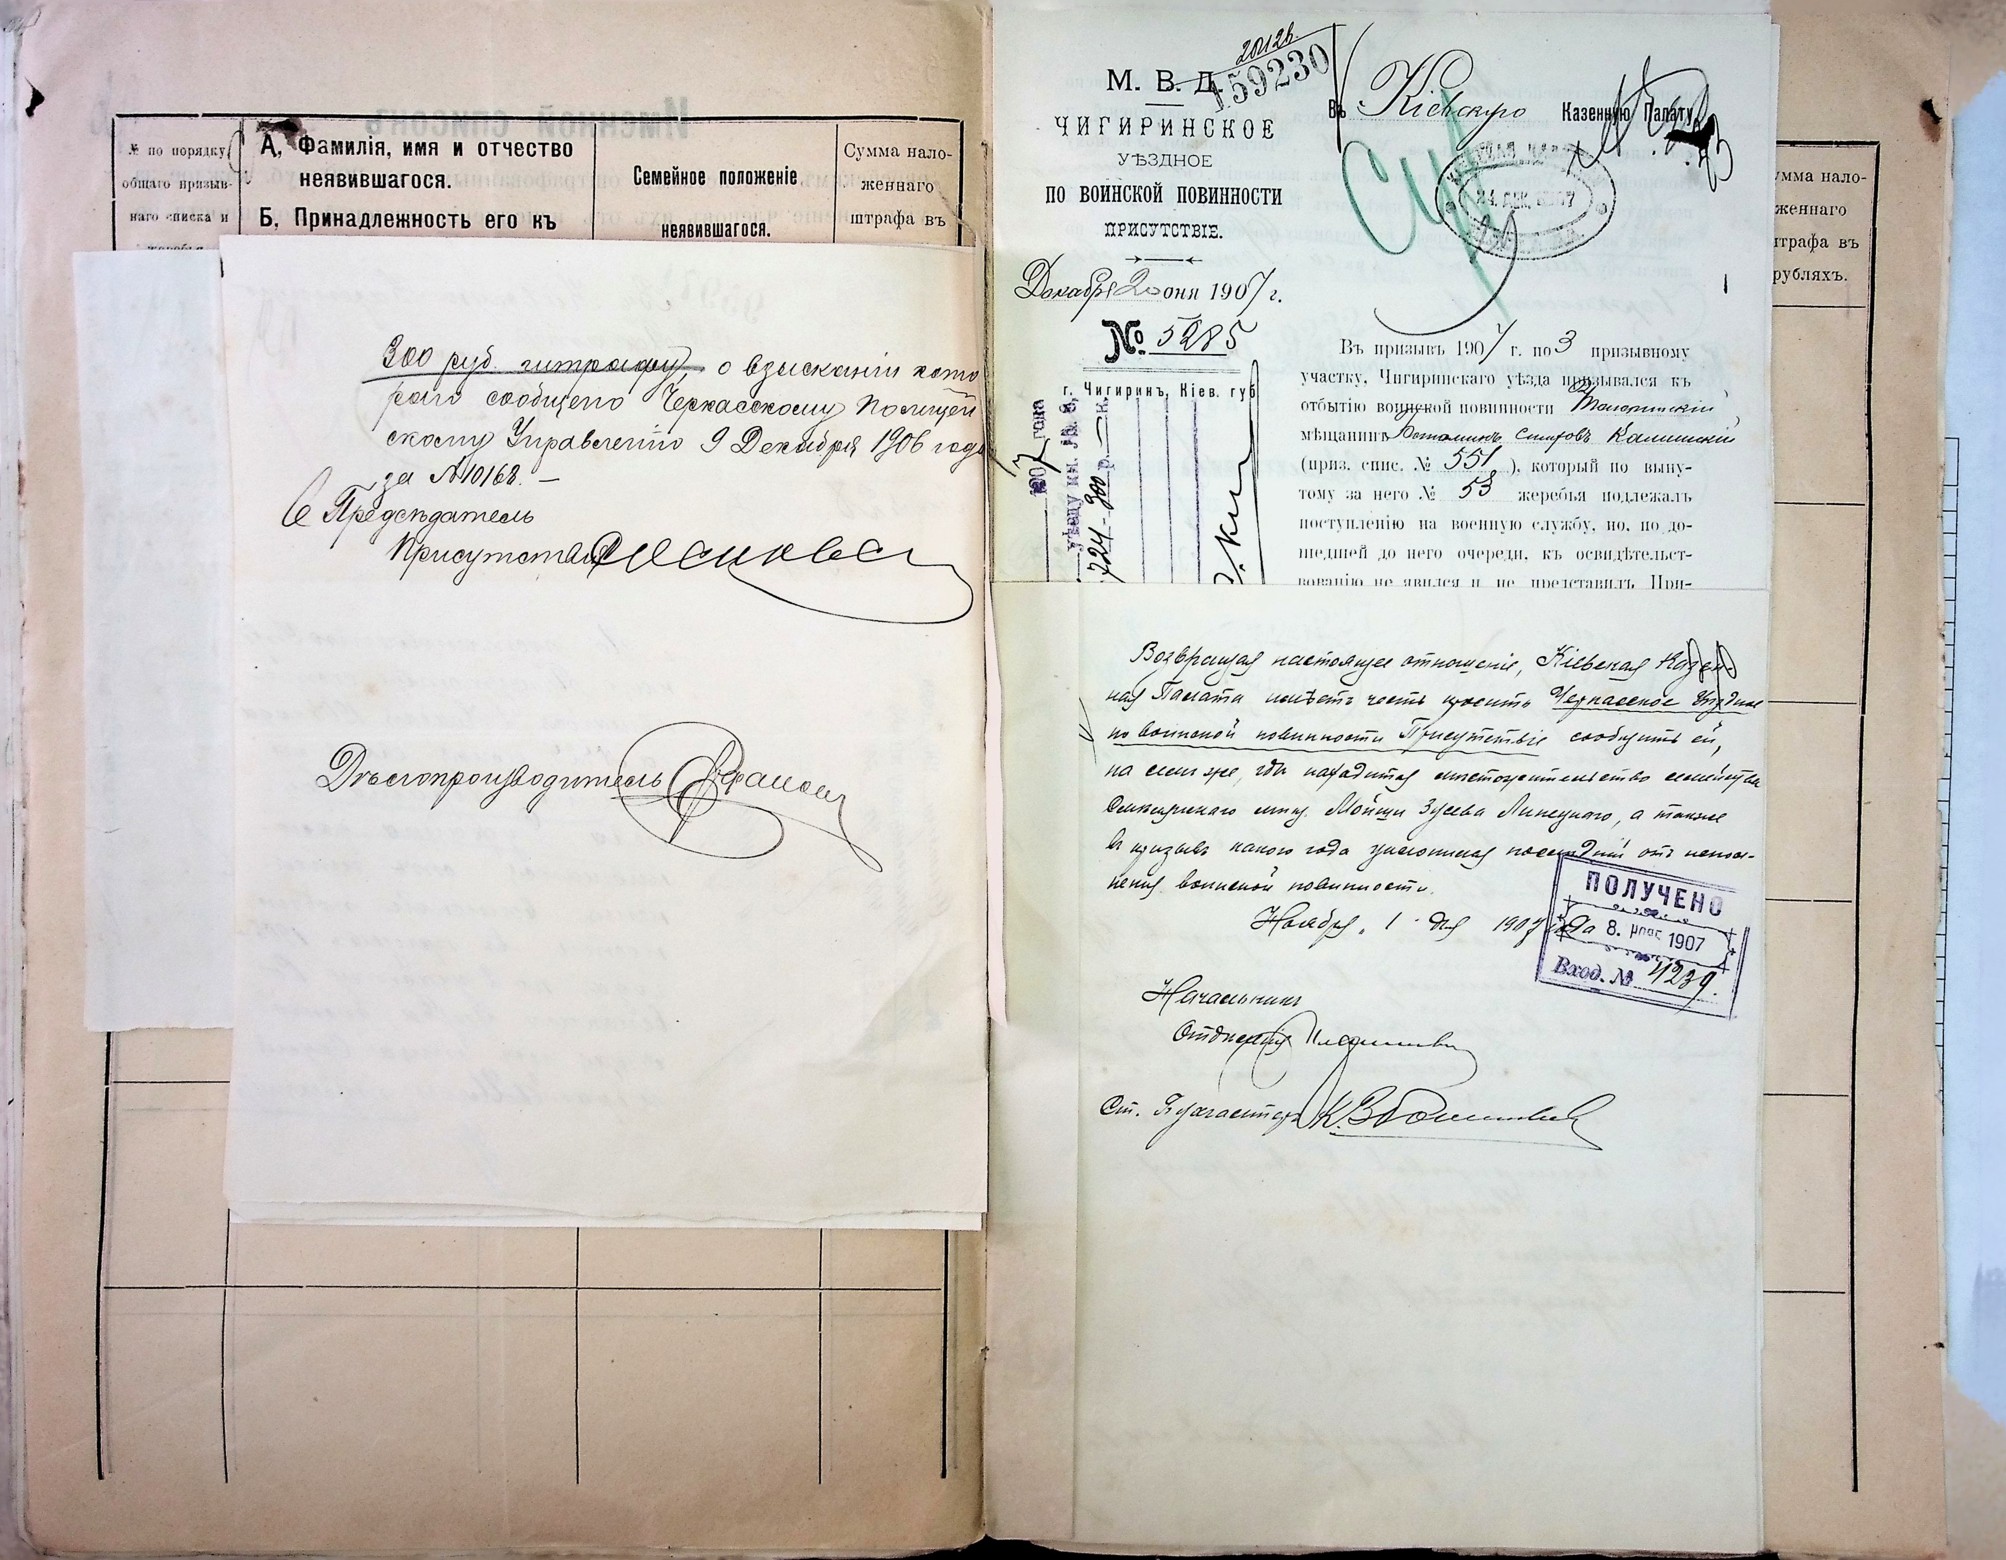 № по порядку
общаго призыв-
наго списка и
жеребья
А, Фамилія, имя и отчество
неявившагося.
Б, Принадлежность его къ
Семейное положеніе
неявившагося.
Сумма нало-
женнаго
штрафа въ
300 руб. штрафу, о взысканіи кото
раго сообщено Черкасскому Полицей
скому Управленію 9 Декабря 1906 года
за №10168. —
Предсѣдатель
Присутствія
Дѣлопроизводитель
20126.
159230
М. В. Д.
ЧИГИРИНСКОЕ
УѢЗДНОЕ
ПО ВОИНСКОЙ ПОВИННОСТИ
ПРИСУТСТВІЕ.
Декабря 20 дня 1907 г.
№ 5285
г. Чигиринъ, Кіев. губ.
1907 года
уѣзду кн. № 8,
724 - 300 р. — к.
Въ Кіевскую Казенную Палату
24 ДЕК. 1907
Въ призывъ 1907 г. по 3 призывному
участку, Чигиринскаго уѣзда призывался къ
отбытію воинской повинности
мѣщанинъ
(приз. спис. № 551 ), который по выну-
тому за него № 53 жеребья подлежалъ
поступленію на военную службу, но, по до-
шедшей до него очереди, къ освидѣтельст-
вованію не явился и не представилъ При-
Возвращая настоящее отношеніе, Кіевская Казен-
ная Палата имѣетъ честь просить Черкасское Уѣздное
по воинской повинности Присутствіе сообщить ей,
на семъ же, гдѣ находится мѣстожительство семейства
мѣщ. Мойши Зусева Липецкаго, а также
въ призывъ какого года уклонился послѣдній отъ испол-
ненія воинской повинности.
Ноября 1 дня 1907 года
ПОЛУЧЕНО
8. НОЯБ 1907
Вход. № 4239.
Начальникъ
Отдѣленія
Ст. Бухгалтеръ
умма нало-
женнаго
трафа въ
рубляхъ.